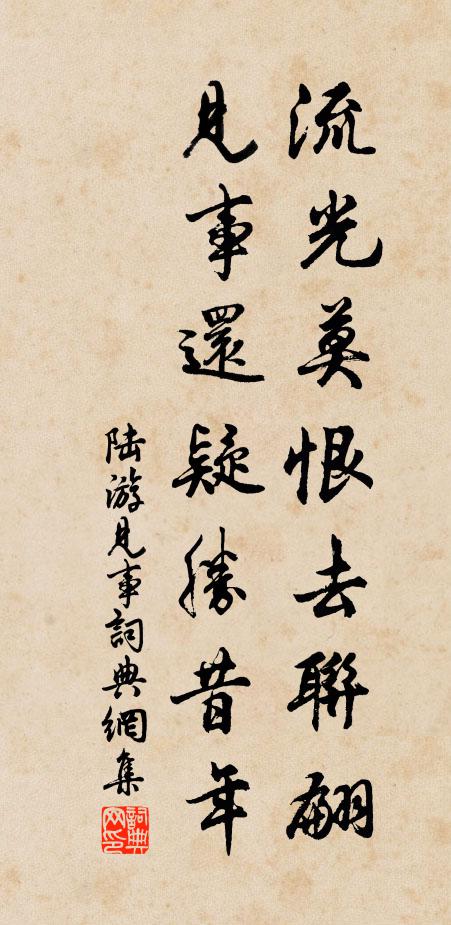 流光莫恨去聯翩
見事還疑勝昔年
陸游見事詞典網集
詞典網印